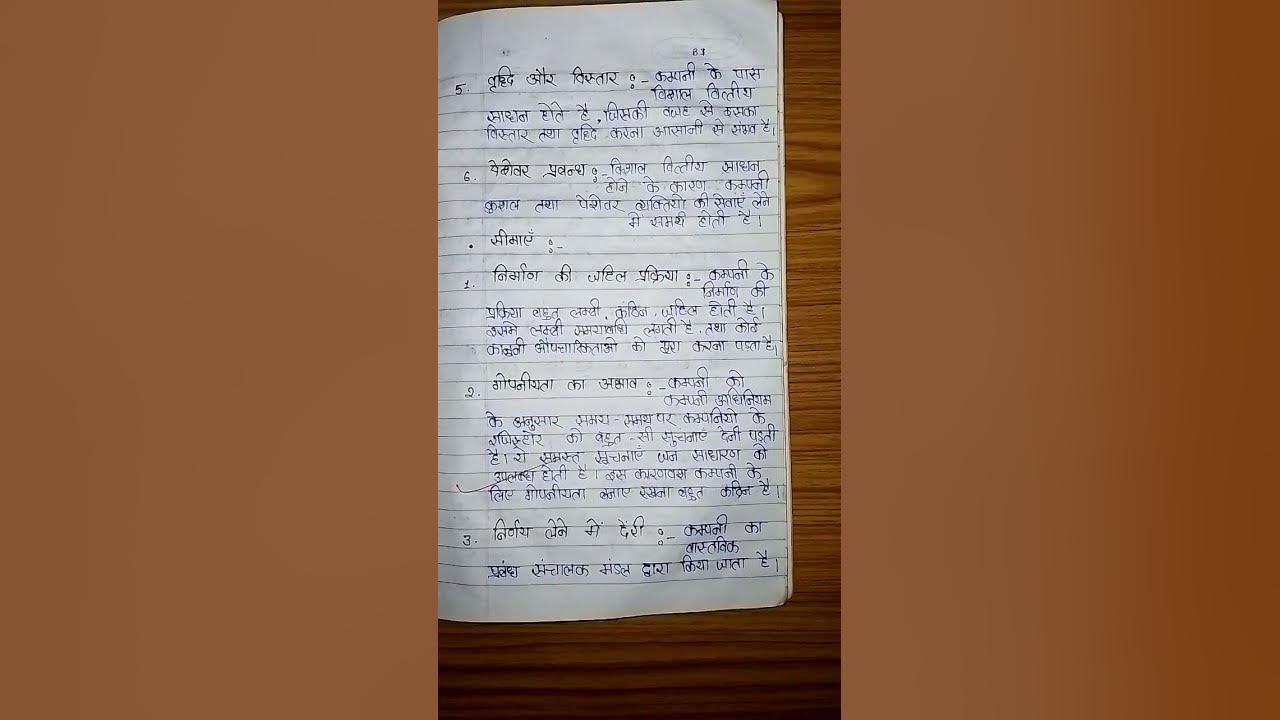 B7
5. वृद्धि और विस्तार :- कम्पनी के पास
विशाल वित्तीय
साधन होते है, जिसकी वजह से इसका
विस्तार तथा वृद्धि करना आसानी से संभव है।
6. पेशेवर प्रबन्ध :- विशाल वित्तीय साधन
होने के कारण कम्पनी
कुशल तथा पेशेवर व्यक्तियो की सेवाएँ लेने
में समर्थ होती है।
• सीमाएँ :-
1. निर्माण की जटिल प्रक्रिया :- कम्पनी के
निर्माण की
प्रक्रिया बहुत लम्बी, कठिन, जटिल होती है।
इसमे लम्बी समयावधि लगती है, तथा कोई
कानूनी औपचारिकताओ को पूरा करना पड़ता है।
2. गोपनीयता का अभाव :- कम्पनी को
कम्पनी अधिनियम
के अनुसार समय-समय पर कम्पनियो के
रजिस्ट्रार को बहुत-सी सूचनाएँ देनी पड़ती
है। ये समस्त सूचनाएँ जन साधारण को
उपलब्ध होती है। इस कारणवश कम्पनी के
लिए गोपनीयता बनाए रखना बहुत कठिन है।
3. निर्णय लेने में देरी :- कम्पनी का
वास्तविक
प्रबंध संचालक मंडल द्वारा किया जाता है।